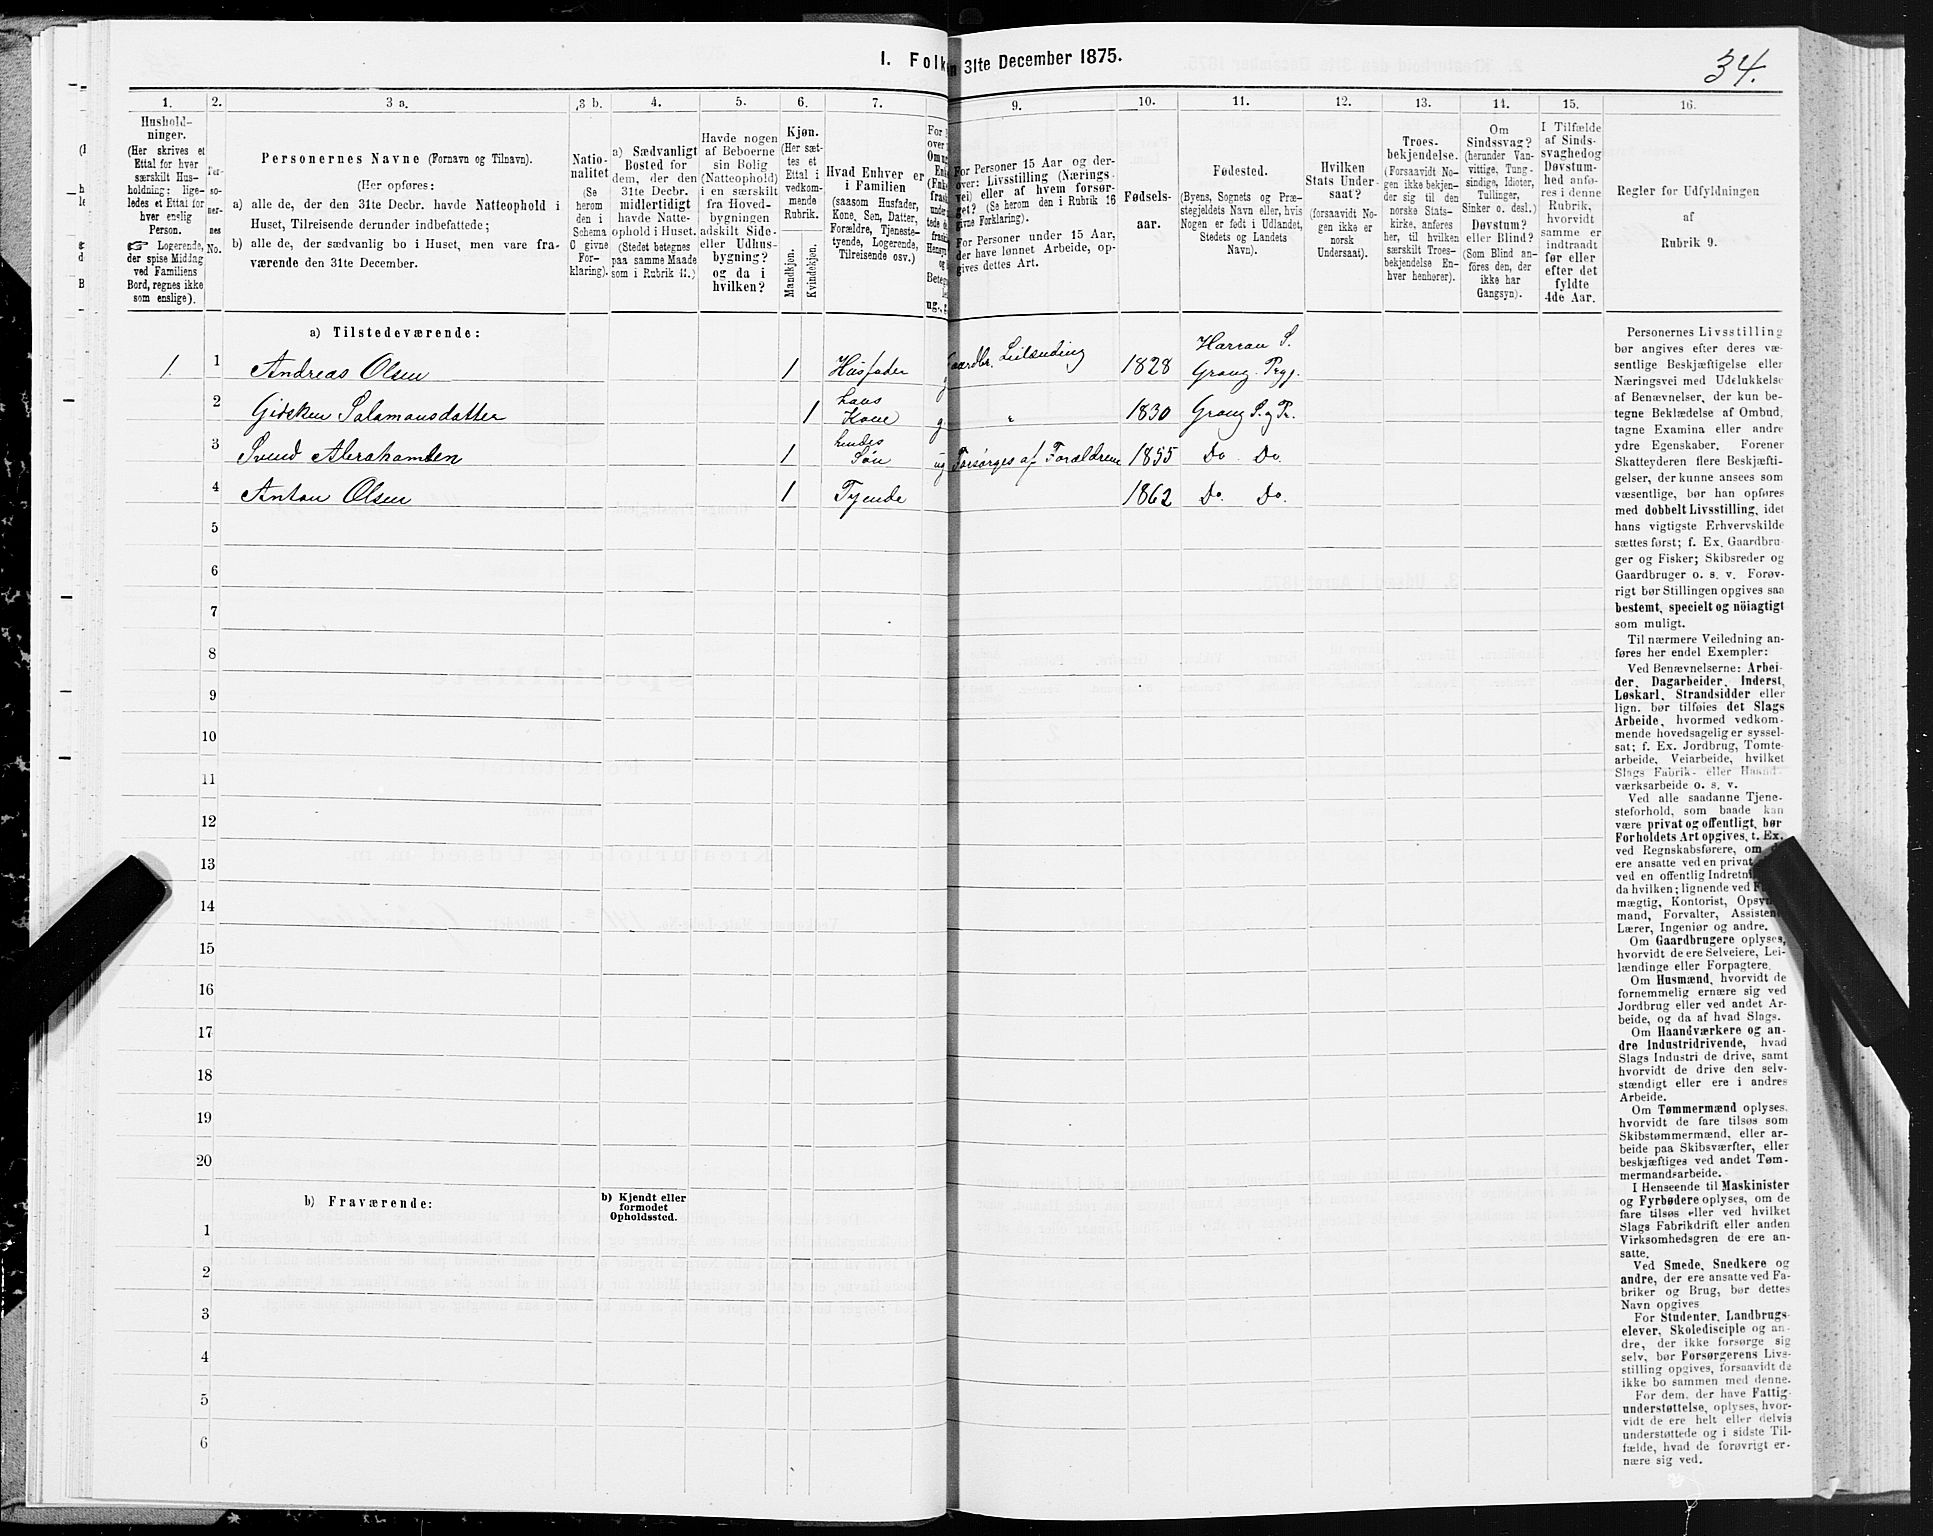 1. Folk n 31te December 1875.
34.
1. 2. 3 a. 3 b. 4. 5. 6. 7. 9. 10. 11. 12. 13. 14. 15. 16.
Hushold-
ninger.
(Her skrives et
Ettal for hver
særskilt Hus-
holdning; lige-
ledes et Ettal for
hver enslig
Person.
☞ Logerende,
der spise Middag
ved Familiens
Bord, regnes ikke
som enslige).
Per-
so-
ner-
nes
No.
Personernes Navne (Fornavn og Tilnavn).
(Her opføres:
a) alle de, der den 31te Decbr. havde Natteophold i
Huset, Tilreisende derunder indbefattede;
b) alle de, der sædvanlig bo i Huset, men vare fra-
værende den 31te December.
Natio-
nalitet
(Se
herom
den i
Schema
C givne
For-
klaring).
a) Sædvanligt
Bosted for
dem, der den
31te Decbr.
midlertidigt
havde Natte-
ophold i Huset.
(Stedet betegnes
paa samme Maade
som i Rubrik 11.)
Havde nogen
af Beboerne
sin Bolig
(Natteophold)
i en særskilt
fra Hoved-
bygningen
adskilt Side-
eller Udhus-
bygning?
og da i
hvilken?
Kjøn.
(Her sæt-
tes et
Ettal i
vedkom-
mende
Rubrik.
Mandkjøn.
Kvindekjøn.
Hvad Enhver er
i Familien
(saasom Husfader,
Kone, Søn, Datter,
Forældre, Tjeneste-
tyende, Logerende,
Tilreisende osv.)
For Personer 15 Aar og der-
over: Livsstilling (Nærings-
vei) eller af hvem forsør-
get? (Se herom den i Rubrik 16
givne Forklaring).
For Personer under 15 Aar,
der have lønnet Arbeide, op-
gives dettes Art.
Fødsels-
aar.
Fødested.
(Byens, Sognets og Præ-
stegjeldets Navn eller, hvis
Nogen er født i Udlandet,
Stedets og Landets
Navn).
Hvilken
Stats Under-
saat?
(forsaavidt No-
gen ikke er
norsk
Undersaat).
Troes-
bekjendelse.
(Forsaavidt No-
gen ikke bekjen-
der sig til den
norske Stats-
kirke, anføres
her, til hvilken
særskilt Troes-
bekjendelse En-
hver henhører).
Om
Sindssvag?
(herunder Van-
vittige, Tung-
sindige, Idioter,
Tullinger,
Sinker o. desl.)
Døvstum?
eller Blind?
(Som Blind an-
føres den, der
ikke har
Gangsyn).
I Tilfælde
af Sinds-
svaghedog
Døvstum-
hed anfø-
res i denne
Rubrik,
hvorvidt
samme er
indtraadt
før eller
efter det
fyldte
4de Aar.
Regler for Udfyldningen
af
Rubrik 9.
a) Tilstedeværende:
1. 1 Andreas Olsen 1 Husfader g Gaardbr. Leilænding 1828 Harran S. Grong Prgj.
2 Gidsken Salamonsdatter 1 hans Kone g. " 1830 Grong S. og Pr.
3 Svend Abrahamsen 1 hendes Søn ug Forsørges af Forældrene 1855 Do. Do.
4 Anton Olsen 1 Tyende 1862 Do. Do.
5
6
7
8
9
10
11
12
13
14
15
16
17
18
19
20
b) Fraværende:
b) Kjendt eller
formodet
Opholdssted.
1
2
3
4
5
6
Personernes Livsstilling
bør angives efter deres væ-
sentlige Beskjæftigelse eller
Næringsvei med Udelukkelse
af Benævnelser, der kun be-
tegne Beklædelse af Ombud,
tagne Examina eller andre
ydre Egenskaber. Forener
Skatteyderen flere Beskjæfti-
gelser, der kunne ansees som
væsentlige, bør han opføres
med dobbelt Livsstilling, idet
hans vigtigste Erhvervskilde
sættes først; f. Ex. Gaardbru-
ger og Fisker; Skibsreder og
Gaardbruger o. s. v. Forøv-
rigt bør Stillingen opgives saa
bestemt, specielt og nöiagtigt
som muligt.
Til nærmere Veiledning an-
føres her endel Exempler:
Ved Benævnelserne: Arbei-
der, Dagarbeider, Inderst,
Løskarl, Strandsidder eller
lign. bør tilføies det Slags
Arbeide, hvormed vedkom-
mende hovedsagelig er syssel-
sat; f. Ex. Jordbrug, Tomte-
arbeide, Veiarbeide, hvilket
Slags Fabrik- eller Haand-
værksarbeide o. s. v.
Ved alle saadanne Tjene-
steforhold, som baade kan
være privat og offentligt, bør
Forholdets Art opgives, t. Ex.
ved Regnskabsførere, om
ere ansatte ved en privat
ved en offentlig
da hvilken; lignende ved
mægtig, Kontorist,
mand, Forvalter,
Lærer, Ingeniør og andre.
Om Gaardbrugere oplyses,
hvorvidt de ere Selveiere, Lei-
lændinge eller Forpagtere.
Om Husmænd, hvorvidt de
fornemmelig ernære sig ved
Jordbrug eller ved andet Ar-
beide, og da af hvad Slags.
Om Haandværkere og an-
dre Industridrivende, hvad
Slags Industri de drive, samt
hvorvidt de drive den selv-
stændigt eller ere i andres
Arbeide.
Om Tømmermænd oplyses,
hvorvidt de fare tilsøs som
Skibstømmermænd, eller ar-
beide paa Skibsværfter, eller
beskjæftiges ved andet Tøm-
mermandsarbeide.
I Henseende til Maskinister
og Fyrbødere oplyses, om de
fare tilsøs eller ved hvilket
Slags Fabrikdrift eller anden
Virksomhedsgren de ere an-
satte.
Ved Smede, Snedkere og
andre, der ere ansatte ved Fa-
briker og Brug, bør dettes
Navn opgives
For Studenter, Landbrugs-
elever, Skoledisciple og an-
dre, der ikke forsørge sig
selv, bør Forsørgerens Livs-
stilling opgives, forsaavidt de
ikke bo sammen med denne.
For dem, der have Fattig-
understøttelse, oplyses, hvor-
vidt de ere helt eller delvis
understøttede og i sidste Til-
fælde, hvad de forøvrigt er-
nære sig ved.